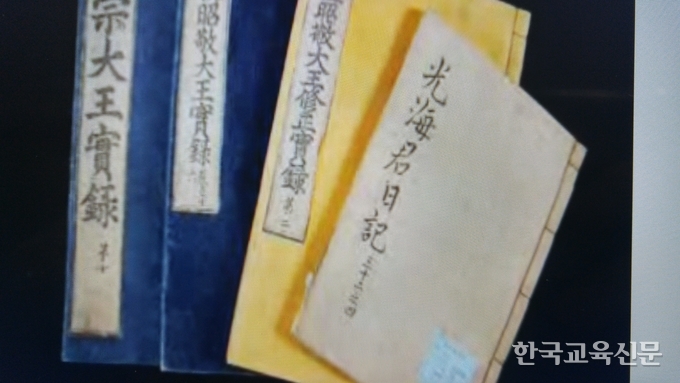 宗大王實錄
第十
昭敬大王實錄
昭敬大王修正實錄
第二
光海君日記
한국교육신문